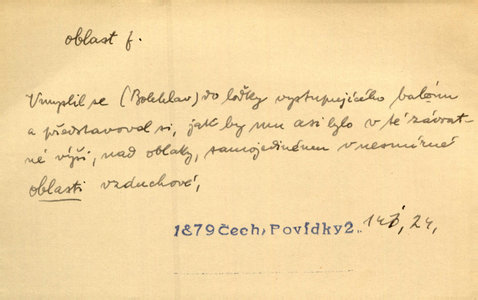 oblast f.
Vmyslil se (Boleslav) do loďky vystupujícího balónu
a představoval si, jak by mu asi bylo v té závrat-
né výši, nad oblaky, samojedinému v nesmírné
oblasti vzduchové,
1879 Čech, Povídky 2. 24,